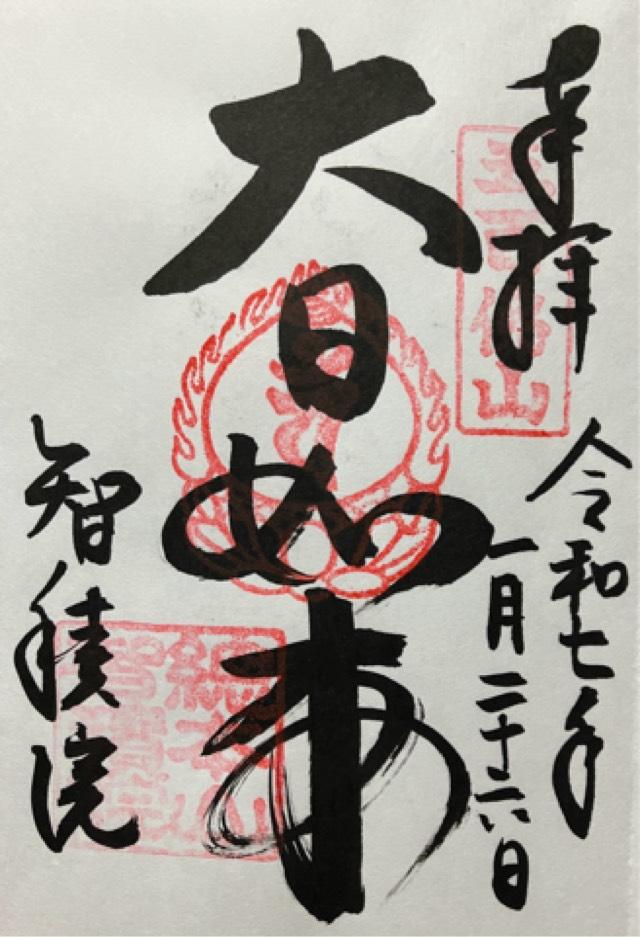 奉拝
令和七年
一月二十六日
大日如来
智積院
五百佛山
総本山
智積院